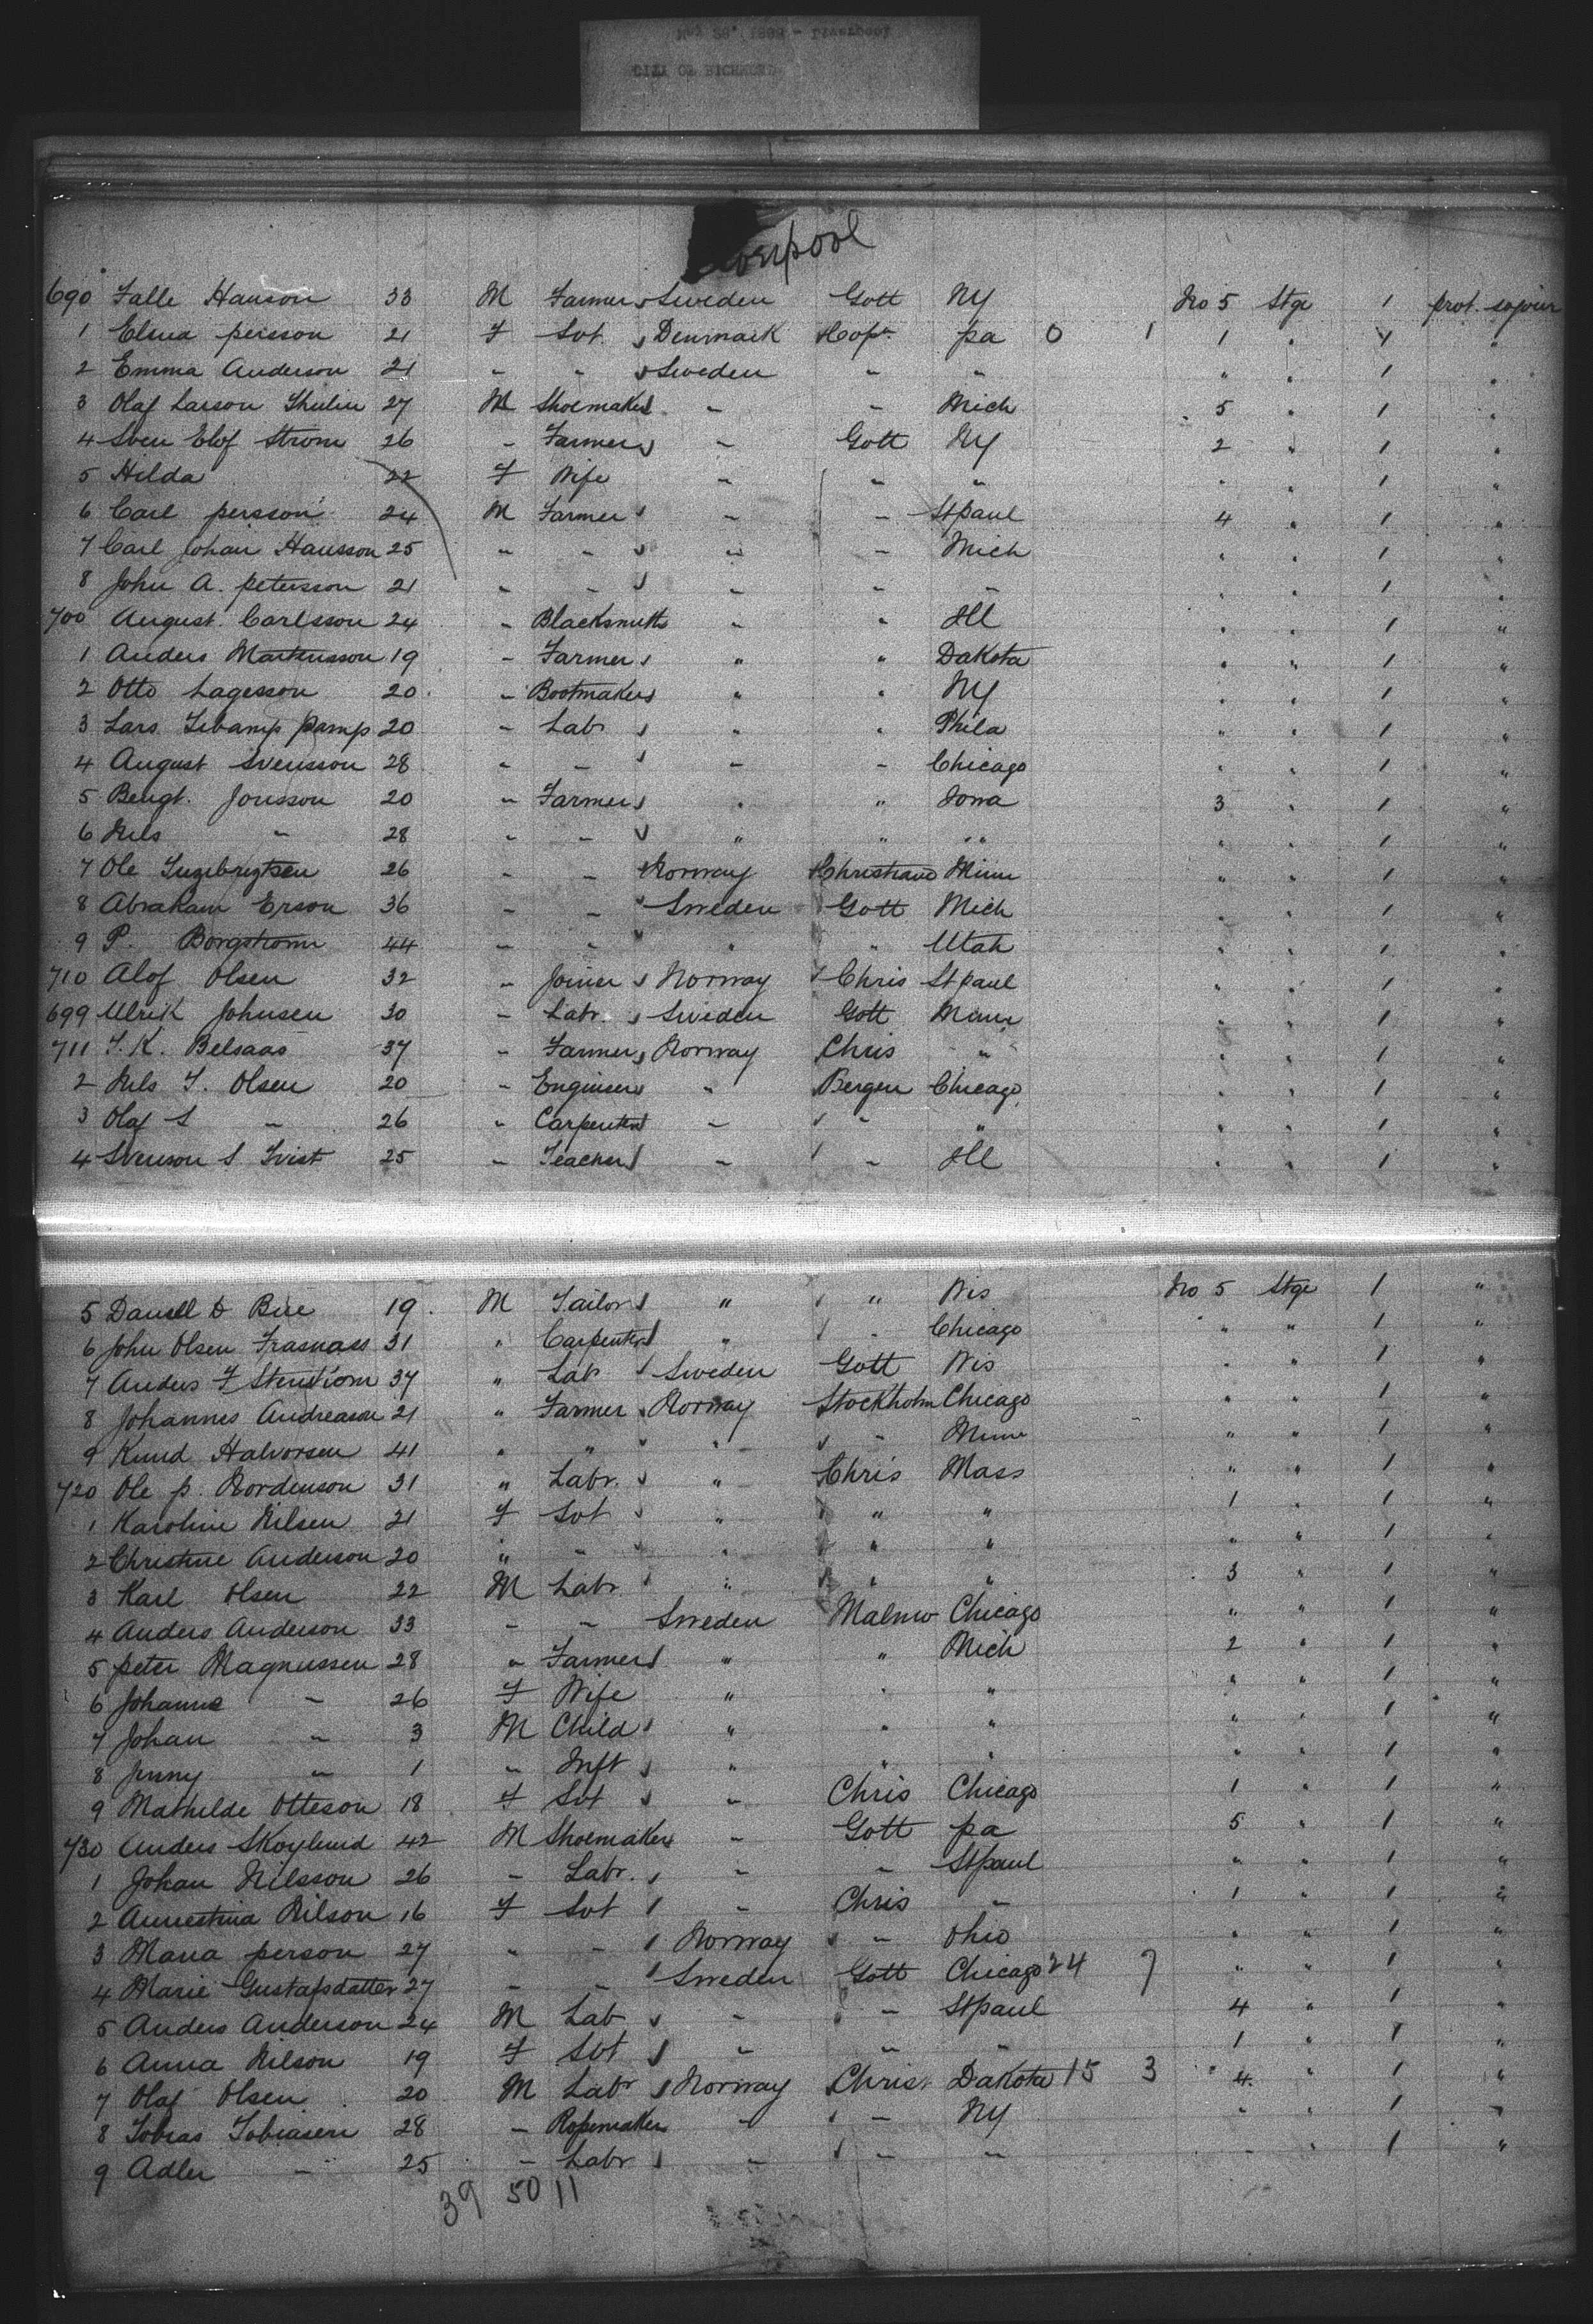 May 28, 1888 - Liverpool
CITY OF RICHMOND
Liverpool
690 Falle Hanson 33 M Farmer Sweden Gott NY No 5 Stge 1 prot. sojour
1 Elna persson 21 F Svt. Denmark Kopn pa 0 1 1 " 1 "
2 Emma Anderson 21 " " Sweden " " " " 1 "
3 Olaf Larson Thulin 27 M Shoemaker " " Mich 5 " 1 "
4 Sven Elof Strom 26 " Farmer " Gott NY 2 " 1 "
5 Hilda 22 F Wife " " " " " 1 "
6 Carl persson 24 M Farmer " " St paul 4 " 1 "
7 Carl Johan Hansson 25 " " " " Mich " " 1 "
8 John A. petersson 21 " " " " " " " 1 "
700 August Carlsson 24 " Blacksmith " " Ill " " 1 "
1 Anders Martensson 19 " Farmer " " Dakota " " 1 "
2 Otto Lagesson 20 " Bootmaker " " NY " " 1 "
3 Lars pamp 20 " Labr " " Phila " " 1 "
4 August Svensson 28 " " " " Chicago " " 1 "
5 Bengt Jonsson 20 " Farmer " " Iowa 3 " 1 "
6 Nils " 28 " " " " " " " 1 "
7 Ole Ingebrigtsen 26 " " Norway Christiana Minn " " 1 "
8 Abraham Erson 36 " " Sweden Gott Mich " " 1 "
9 P. Borgstrom 44 " " " " Utah " " 1 "
710 Alof Olsen 32 " Joiner Norway Chris St paul " " 1 "
699 Ulrik Johnsen 30 " Labr. Sweden Gott Minn " " 1 "
711 T. K. Belsaas 37 " Farmer Norway Chris " " " 1 "
2 Nils T. Olsen 20 " Engineer " Bergen Chicago " " 1 "
3 Olaf S " 26 " Carpenter " " " " " 1 "
4 Svenson S. Tvist 25 " Teacher " " Ill " " 1 "
5 Daniel D Bue 19 M Tailor " " Wis No 5 Stge 1 "
6 John Olsen Frasnass 31 " Carpenter " " Chicago " " 1 "
7 Anders F Stenstrom 37 " Labr Sweden Gott Wis " " 1 "
8 Johannes Andreason 21 " Farmer Norway Stockholm Chicago " " 1 "
9 Knud Halvorsen 41 " " " " Minn " " 1 "
720 Ole p. Nordenson 31 " Labr. " Chris Mass " " 1 "
1 Karoline Nilsen 21 F Svt " " " 1 " 1 "
2 Christine Anderson 20 " " " " " " " 1 "
3 Karl Olsen 22 M Labr " " " 3 " 1 "
4 Anders Anderson 33 " " Sweden Malmo Chicago " " 1 "
5 peter Magnussen 28 " Farmer " " Mich 2 " 1 "
6 Johanne " 26 F Wife " " " " " 1 "
7 Johan " 3 M Child " " " " " 1 "
8 Jenny " 1 " Inft " " " " " 1 "
9 Mathilde Otteson 18 F Svt " Chris Chicago 1 " 1 "
730 Anders Skoglund 42 M Shoemaker " Gott pa 5 " 1 "
1 Johan Nilsson 26 " Labr. " " St paul " " 1 "
2 Annestina Nilson 16 F Svt " Chris " 1 " 1 "
3 Maria person 27 " " Norway " Ohio " " 1 "
4 Marie Gustafsdatter 27 " " Sweden Gott Chicago 24 7 " " 1 "
5 Anders Anderson 24 M Lab " " St paul 4 " 1 "
6 Anna Nilson 19 F Svt " " " 1 " 1 "
7 Olaf Olsen 20 M Labr Norway Chris Dakota 15 3 4 " 1 "
8 Tobias Tobiasen 28 " Ropemaker " " NY " " 1 "
9 Adler " 25 " Labr " " " " " 1 "
39 50 11